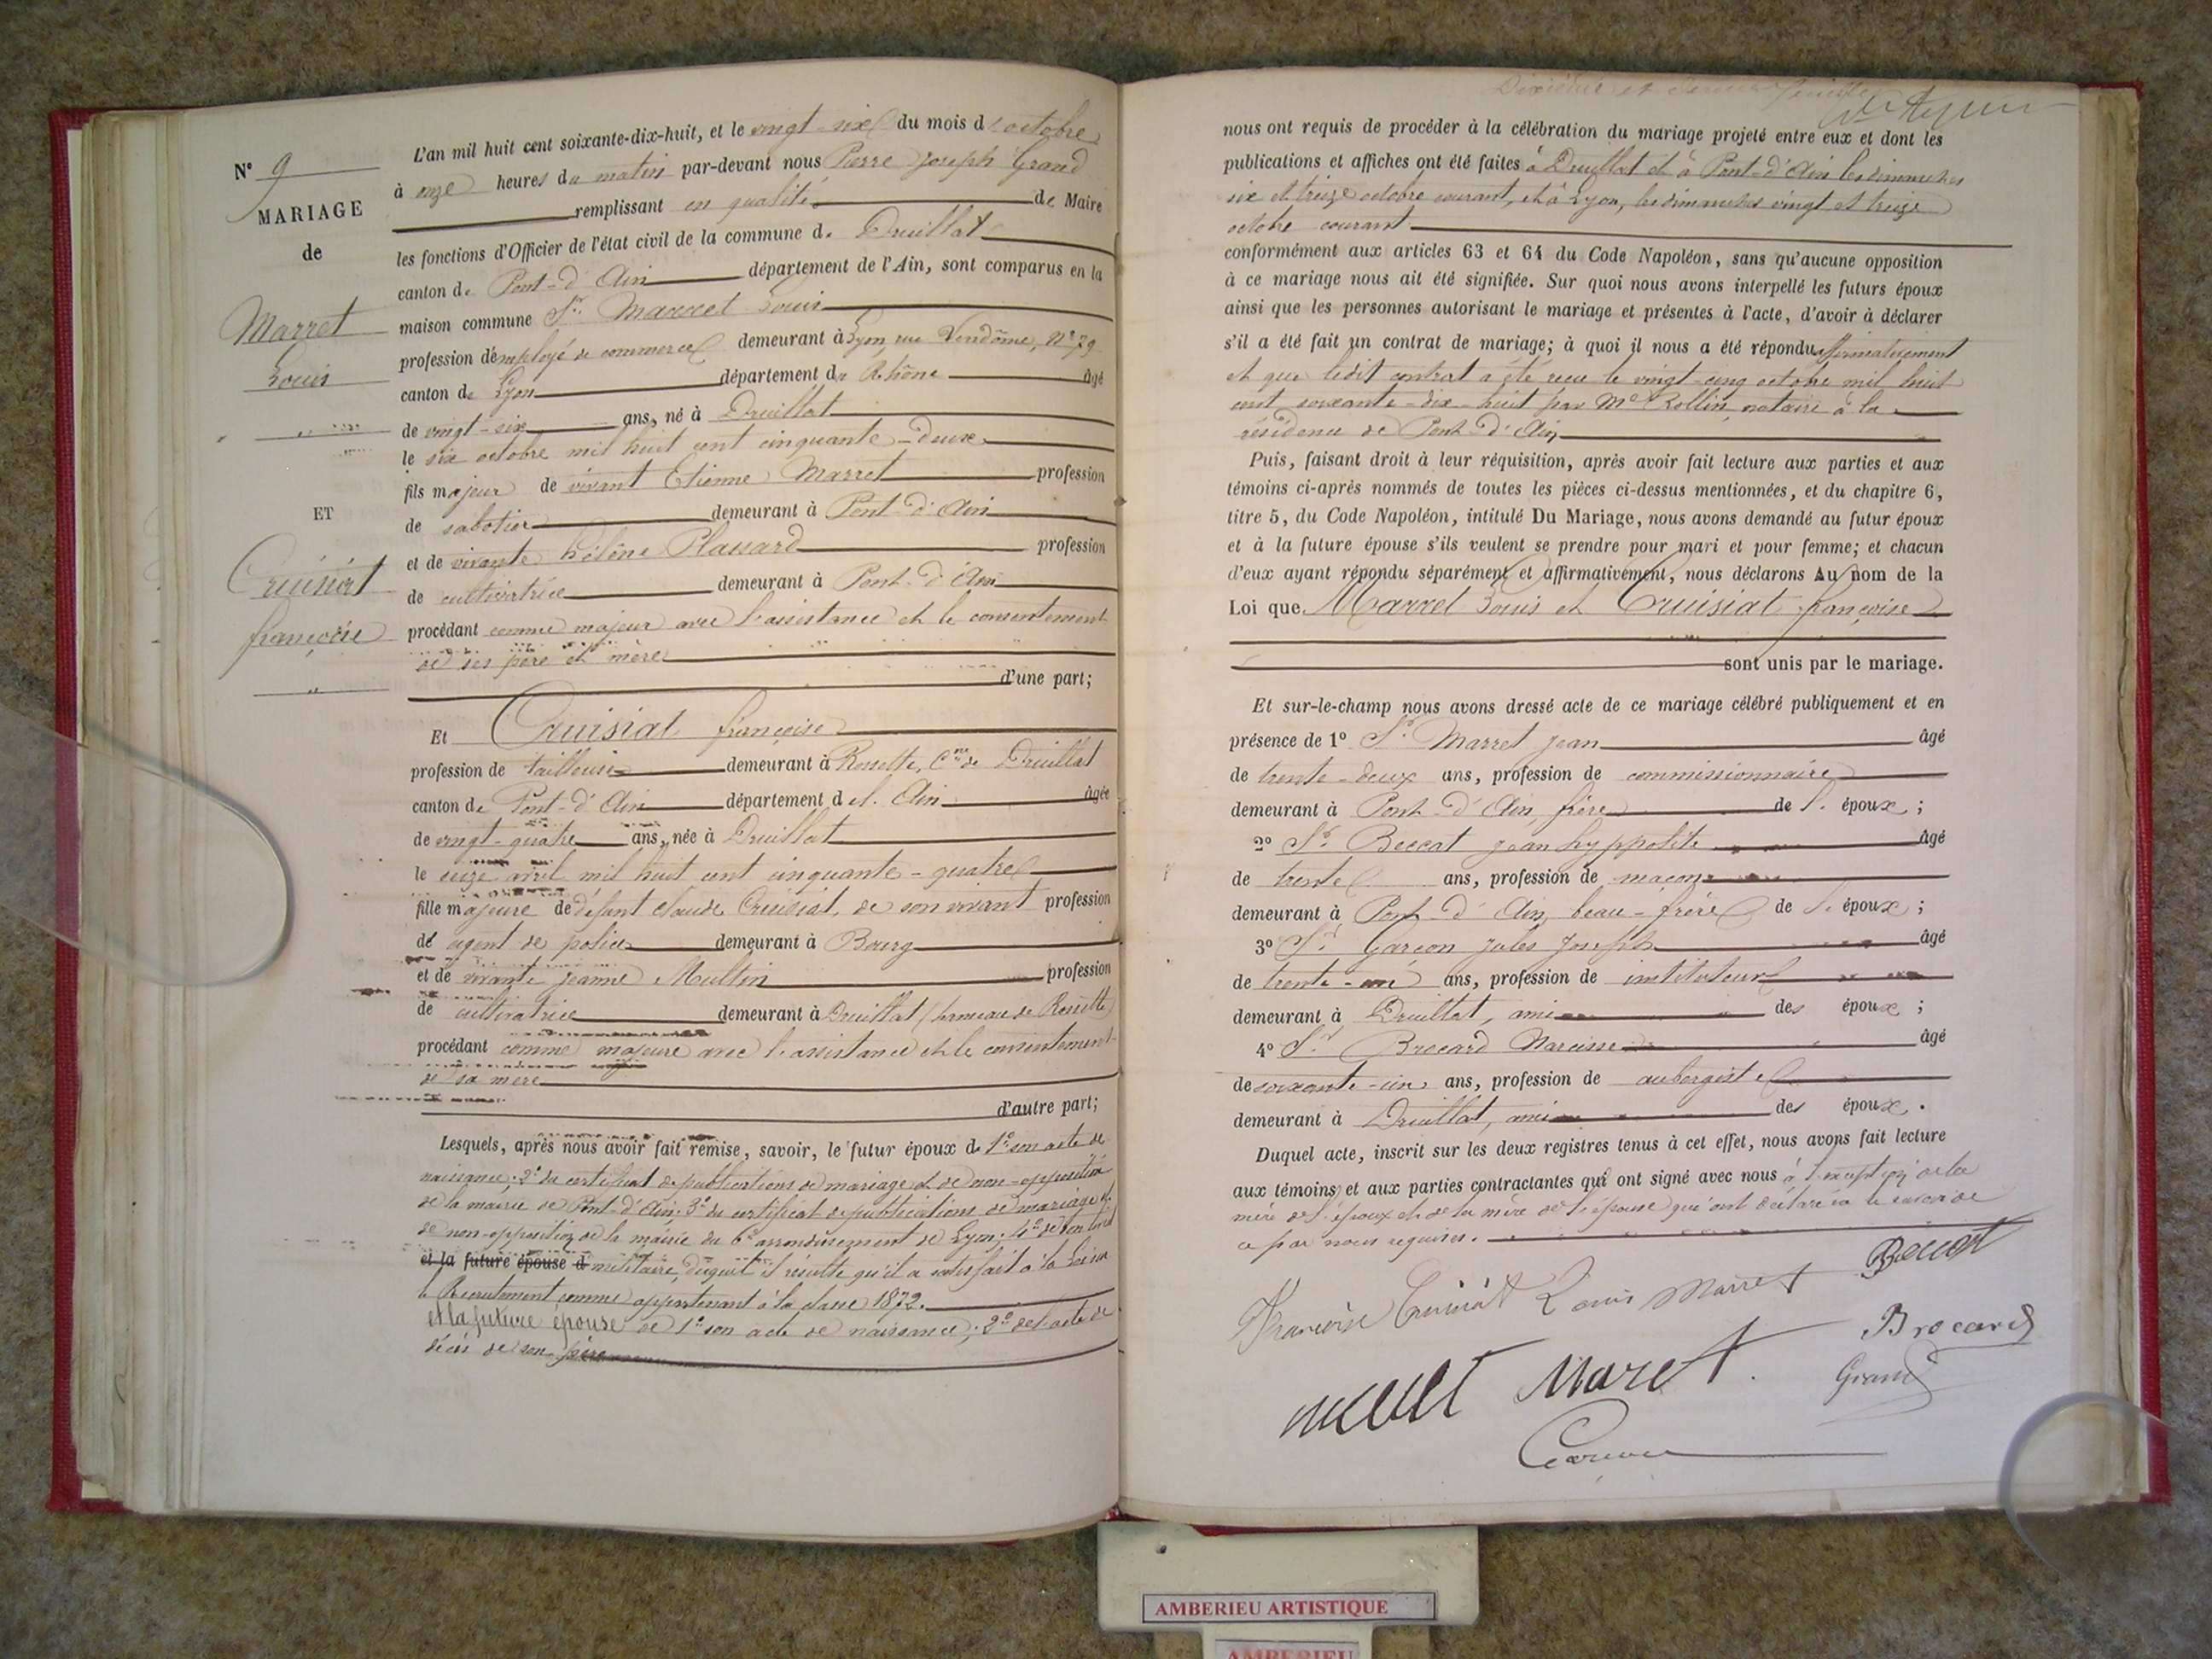 N° 9
MARIAGE
de
Marret
Louis
ET
Cruisiat
françoise
L'an mil huit cent soixante-dix-huit, et le vingt-six du mois d'octobre
à onze heures du matin par-devant nous Pierre Joseph Grand
remplissant en qualité de Maire
les fonctions d'Officier de l'état civil de la commune de Druillat
canton de Pont-d'Ain département de l'Ain, sont comparus en la
maison commune Sr. Marret Louis
profession d'employé de commerce demeurant à Lyon, rue Vendôme, N° 79
canton de Lyon département du Rhône âgé
de vingt-six ans, né à Druillat
le six octobre mil huit cent cinquante-deux
fils majeur de vivant Etienne Marret profession
de sabotier demeurant à Pont-d'Ain
et de vivante hélène Plassard profession
de cultivatrice demeurant à Pont-d'Ain
procédant comme majeur avec l'assistance et le consentement
de ses père et mère
d'une part;
Et Cruisiat françoise
profession de tailleuse demeurant à Rossette, Cne de Druillat
canton de Pont-d'Ain département de l'Ain âgée
de vingt-quatre ans, née à Druillat
le seize avril mil huit cent cinquante-quatre
fille majeure de défunt Claude Cruisiat, de son vivant profession
de agent de police demeurant à Bourg
et de vivante Jeanne profession
de cultivatrice demeurant à Druillat (hameau de Rossette)
procédant comme majeure avec l'assistance et le consentement
de sa mère
d'autre part;
Lesquels, après nous avoir fait remise, savoir, le futur époux de 1° son acte de
naissance; 2° du certificat de publications de mariage et de non-opposition
de la mairie de Pont-d'Ain; 3° du certificat de publications de mariage et
de non-opposition de la mairie du 6e arrondissement de Lyon; 4° de son livret
et la future épouse d militaire, duquel il résulte qu'il a satisfait à la Loi sur
le Recrutement comme appartenant à la classe 1872.
et la future épouse de 1° son acte de naissance; 2° de l'acte de
décès de son père
Dixième et dernier feuillet
nous ont requis de procéder à la célébration du mariage projeté entre eux et dont les
publications et affiches ont été faites à Druillat et à Pont-d'Ain les dimanches
six et treize octobre courant, et à Lyon, les dimanches vingt et treize
octobre courant
conformément aux articles 63 et 64 du Code Napoléon, sans qu'aucune opposition
à ce mariage nous ait été signifiée. Sur quoi nous avons interpellé les futurs époux
ainsi que les personnes autorisant le mariage et présentes à l'acte, d'avoir à déclarer
s'il a été fait un contrat de mariage; à quoi il nous a été répondu affirmativement
et que ledit contrat a été reçu le vingt-cinq octobre mil huit
cent soixante-dix-huit par Me Rollin, notaire à la
résidence de Pont-d'Ain
Puis, faisant droit à leur réquisition, après avoir fait lecture aux parties et aux
témoins ci-après nommés de toutes les pièces ci-dessus mentionnées, et du chapitre 6,
titre 5, du Code Napoléon, intitulé Du Mariage, nous avons demandé au futur époux
et à la future épouse s'ils veulent se prendre pour mari et pour femme; et chacun
d'eux ayant répondu séparément et affirmativement, nous déclarons Au nom de la
Loi que Marret Louis et Cruisiat françoise
sont unis par le mariage.
Et sur-le-champ nous avons dressé acte de ce mariage célébré publiquement et en
présence de 1° Sr. Marret Jean âgé
de trente-deux ans, profession de commissionnaire
demeurant à Pont-d'Ain, frère de l'époux;
2° Sr. Beccat Jean hyppolite âgé
de trente ans, profession de maçon
demeurant à Pont-d'Ain, beau-frère de l'époux;
3° Sr. Garçon Jules Joseph âgé
de trente-un ans, profession de instituteur
demeurant à Druillat, ami des époux;
4° Sr. Brocard Narcisse âgé
de soixante-un ans, profession de aubergiste
demeurant à Druillat, ami des époux.
Duquel acte, inscrit sur les deux registres tenus à cet effet, nous avons fait lecture
aux témoins et aux parties contractantes qui ont signé avec nous à l'exception de la
mère de l'époux et de la mère de l'épouse qui ont déclaré ne le savoir de
ce par nous requises.
Françoise Cruisiat Louis Marret Beccat
Brocard
Maret Grand
AMBERIEU ARTISTIQUE
AMBERIEU